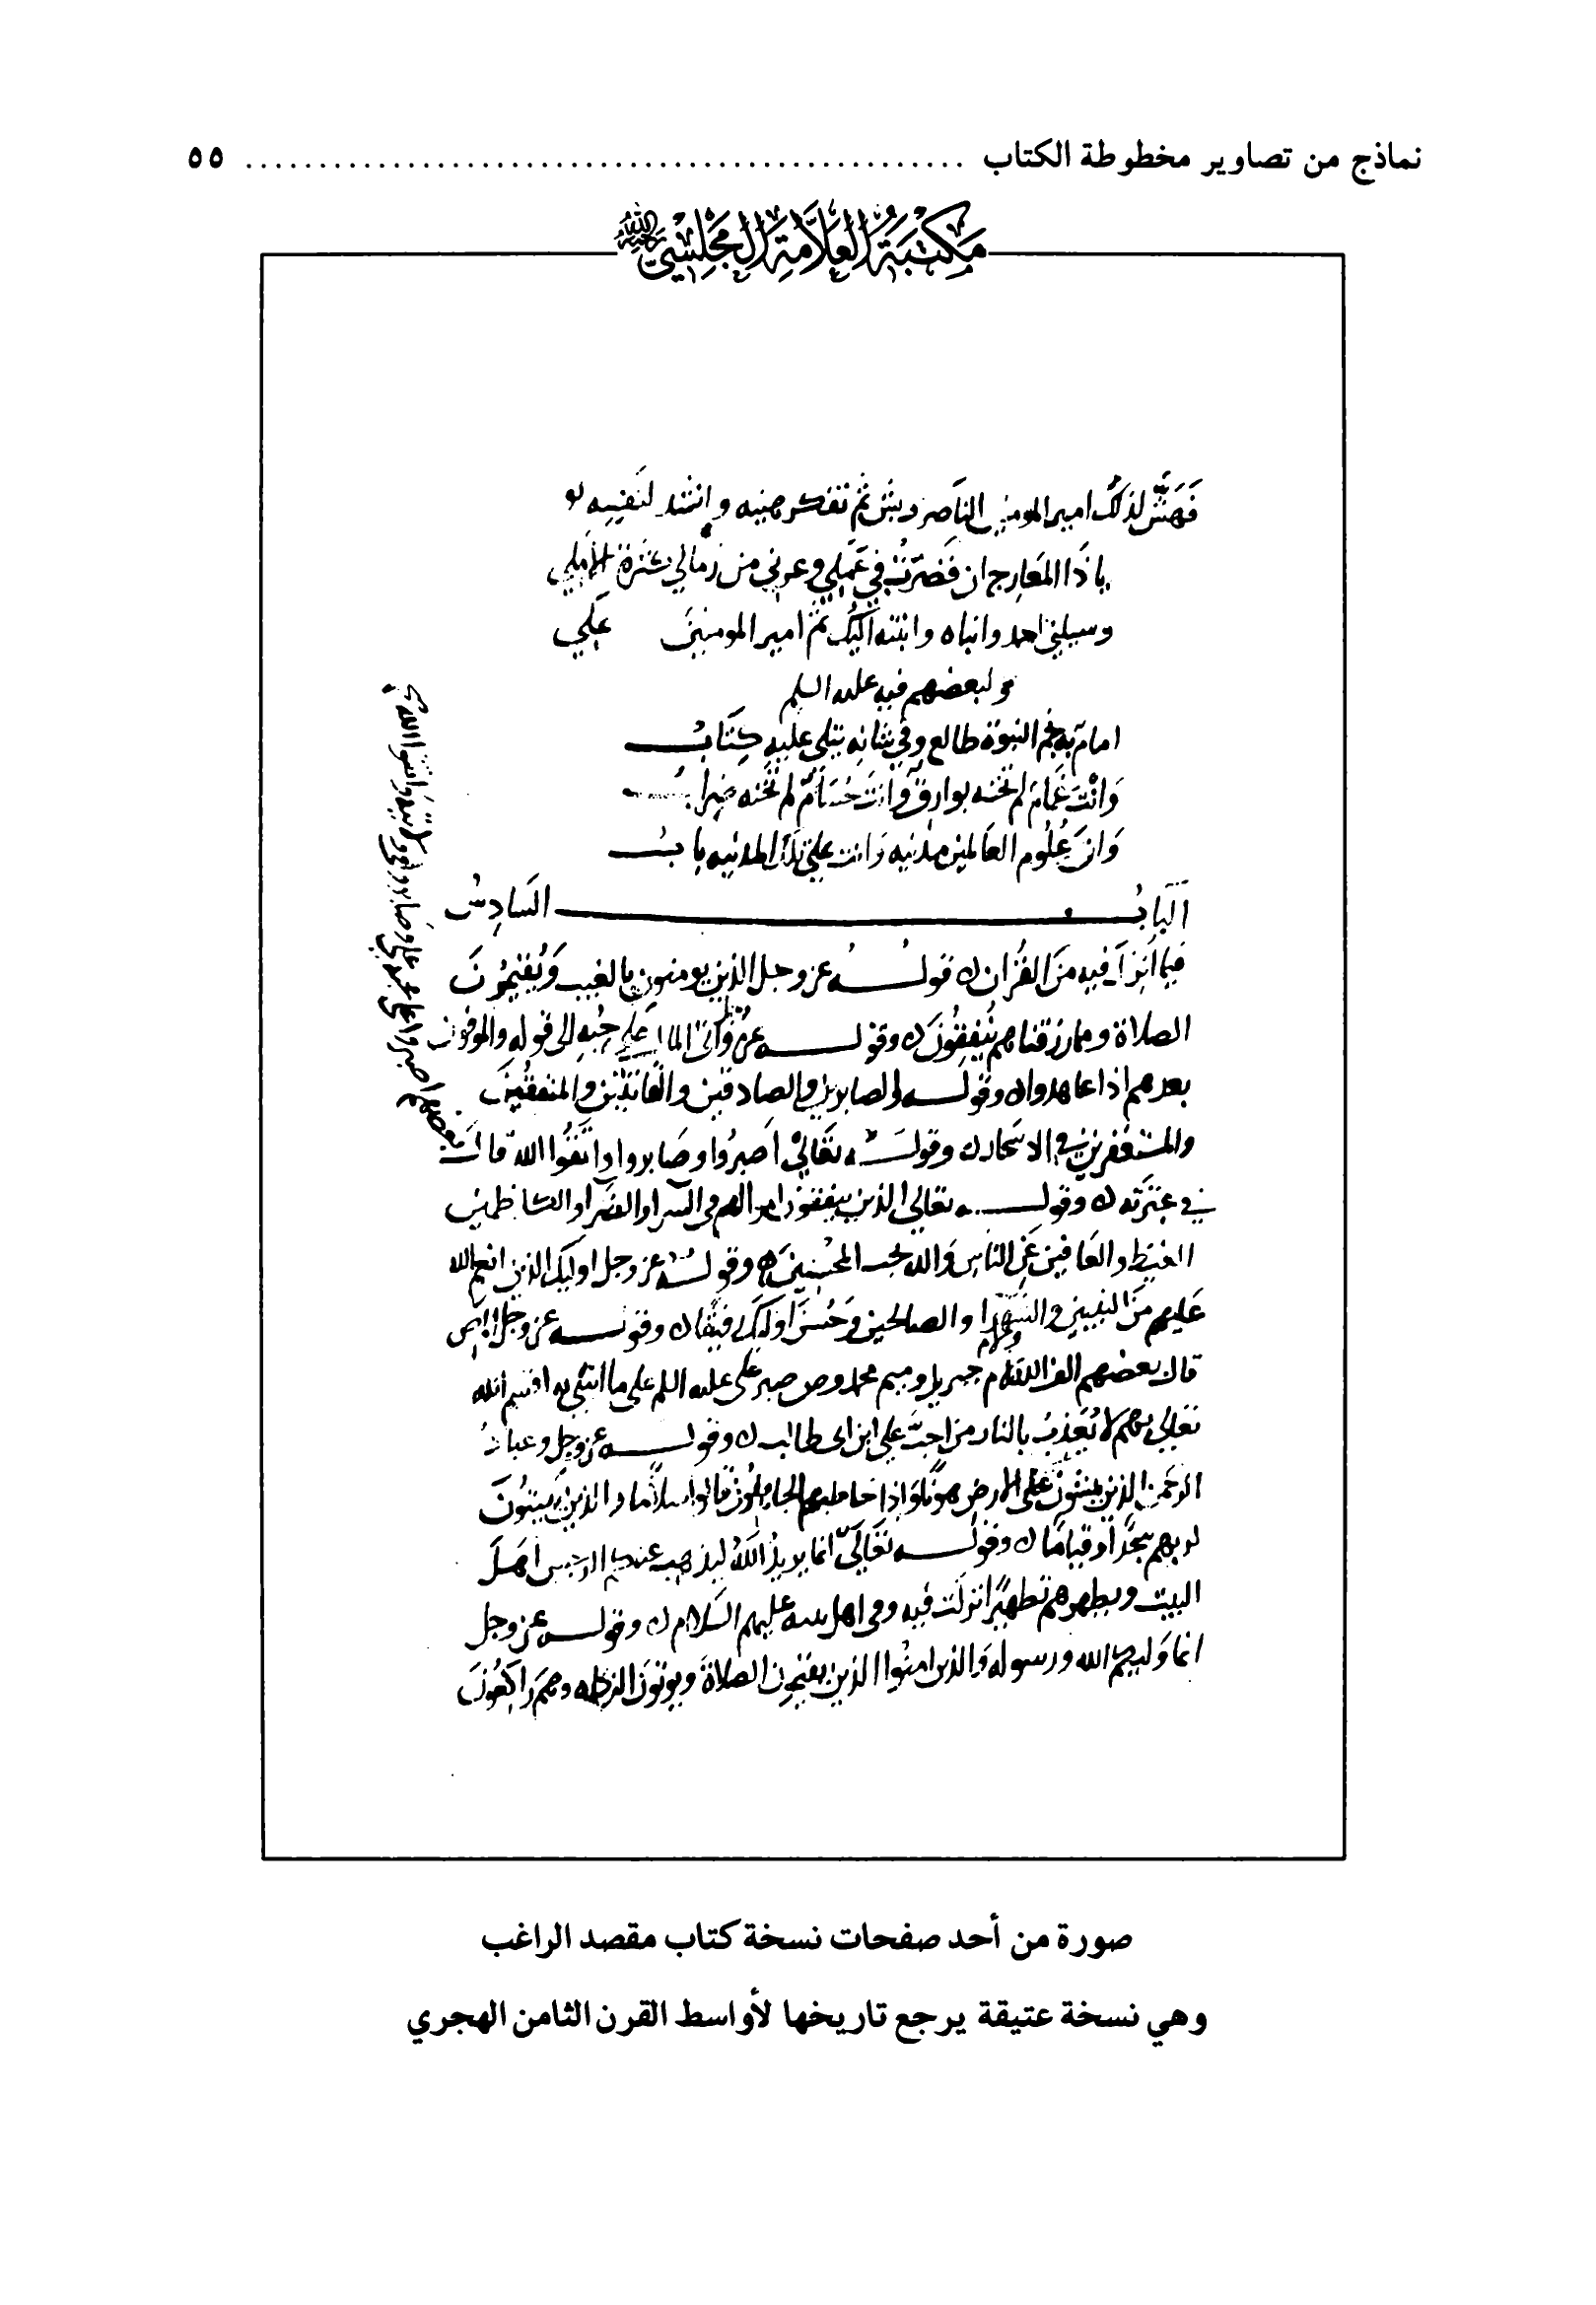 نماذج من تصاوير مخطوطة الكتاب ........................................ ٥٥
مَكتبَةُ العَلاَّمَةِ المَجْلِسِيّ
فَهَشَّ لذلك امير المومنين الناصر وبش ثم تفكر هنيه وانشد لنفسه
يا ذا المعارج ان قصرت في عملي وعرني من زماني كثرة الامل
وسيلتي احمد وابناه وابنته اليك ثم امير المومنين علي
ولبعضهم فيه عليه السلم
امام به نجم النبوة طالع وفي شانه يتلى عليه كِتَابُ
وَانْتَ غمام لم تخنه بوارق وانت حُسَامٌ لم تخنه ضراب
وَان عُلُوم العالمين مدنيه وانت علي تلك المدنيه بابُ
اَلبَابُ السَادِسُ
فيما انزل فيه من القُرانِ قولــه عز وجل الذين يومنون بالغيب وَيُقيمُونَ
الصلاة ومما رزقناهم يُنْفِقُونَ وقولــه عز واتى المال عَلى حُبِهِ الى قوله والموفون
بعدهم اذا عاهدوا وقولــه والصابرين والصادقين والقانتين والمنفقين
والمستغفرين في الاسحار وقولــه تعَالى اصبِرُوا وصَابروا ورابطوا واتقُوا الله قال بعضهم اصبروا على
في عترته وقولــه تعالى الذين ينفقون اموالهم في السرا والضرا والكاظمين
الغيظ والعَافين عَنِ الناس وَالله يحب المحْسِنينَ وقولــه عز وجل اوليك الذين انعم الله
عليهم منَ النبيين والشهدا والصالحين وَحَسُنَ اوليك رفيقا وقولــه عز وجل الم
قال بعضهم الف الله ولام جبريل وميم محمد وص صبر علي عليه السلم على ما ابتلي به اقسم الله
تعالى بهم لا يُعَذبُ بالنار من احبَّ علي ابن ابي طالب وقولــه عز وجل وعبادُ
الرحمن الذين يمشون على الارض هونًا وَاِذا خاطبهم الجاهلون قالوا سلامًا والذين يَبيتُونَ
لربهم سجَّدًا وقيامًا وقولــه تَعَالَى انما يريدُ اللهُ ليذهب عنكم الرجس اهلَ
البيت ويطهركم تطهيرًا نزلت فيه وفي اهل بيته عليهم السَلام وقولــه عز وجل
انما وَليكم الله ورسوله وَالذين امنُوا الذين يقيمون الصلاة ويوتونَ الزكاه وهم رَاكعُونَ
صورة من أحد صفحات نسخة كتاب مقصد الراغب
وهي نسخة عتيقة يرجع تاريخها لأواسط القرن الثامن الهجري